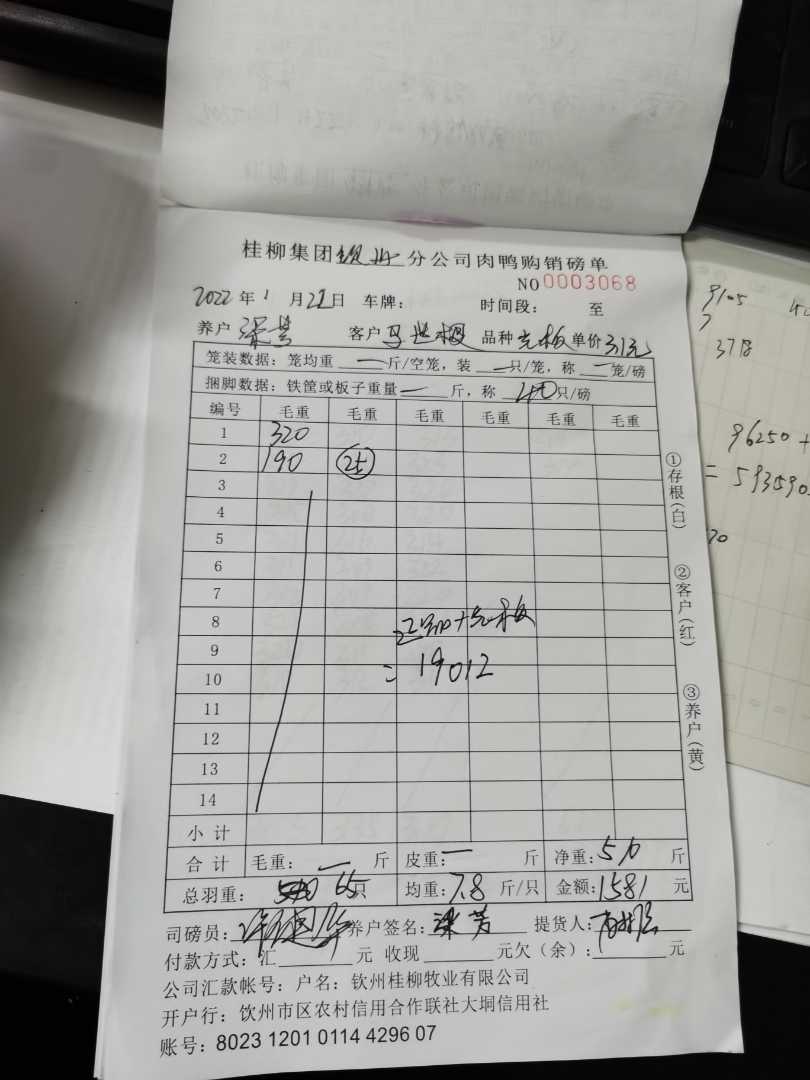 桂柳集团 分公司肉鸭购销磅单
NO 0003068
2022年1月22日 车牌: 时间段: 至
养户 梁芳 客户 品种 单价 3.1元
笼装数据: 笼均重 一 斤/空笼, 装 一 只/笼, 称 一 笼/磅
捆脚数据: 铁筐或板子重量 一 斤, 称 40 只/磅
编号 毛重 毛重 毛重 毛重 毛重 毛重
1 320
2 190
3
4
5
6
7
8
9
10
11
12
13
14
= 19012
小计
合计 毛重: 一 斤 皮重: 一 斤 净重: 510 斤
总羽重: 65 只 均重: 7.8 斤/只 金额: 1581 元
司磅员: 养户签名: 梁芳 提货人:
付款方式: 汇 元 收现 元欠(余): 元
公司汇款帐号: 户名: 钦州桂柳牧业有限公司
开户行: 钦州市区农村信用合作联社大垌信用社
账号: 8023 1201 0114 4296 07
①存根(白)
②客户(红)
③养户(黄)
9105
3718
96250 +